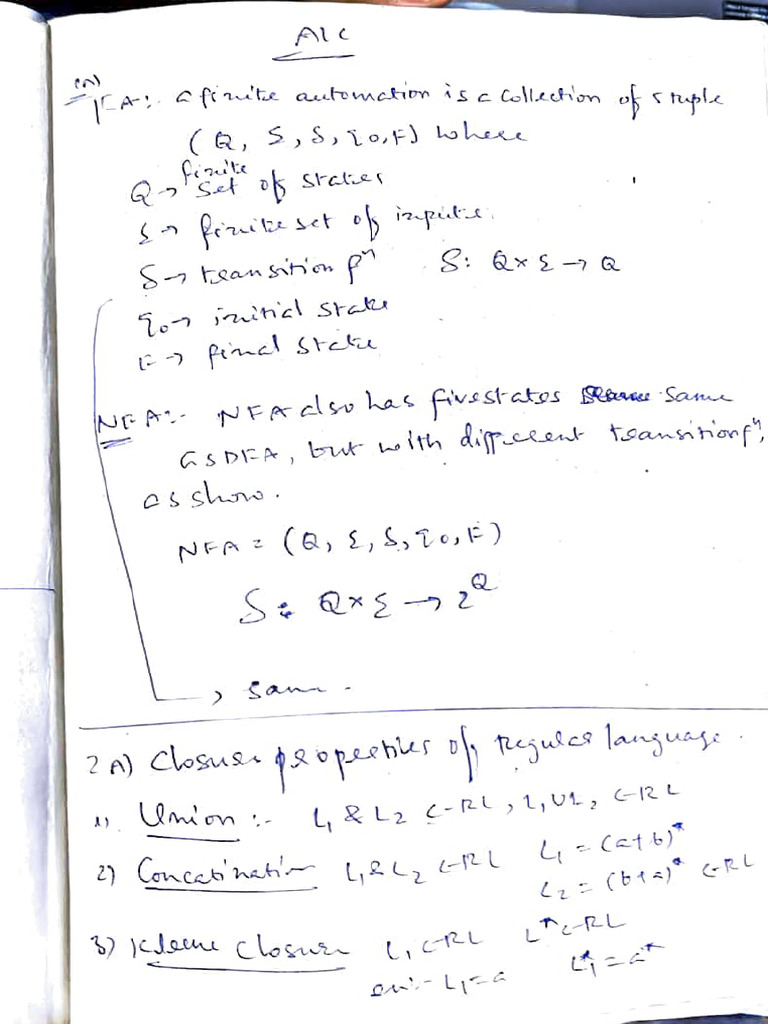 AIC
1A)
FA:- a finite automation is a collection of 5 tuple
(Q, Σ, δ, q0, F) where
Q → finite set of states
Σ → finite set of inputs.
δ → transition fⁿ δ: Q × Σ → Q
q0 → initial state
F → final state
NFA:- NFA also has five states same
as DFA, but with different transition fⁿ,
as show.
NFA = (Q, Σ, δ, q0, F)
δ: Q × Σ → 2^Q
→ same.
2A) Closure properties of regular language.
1). Union :- L1 & L2 ∈ RL, L1 U L2 ∈ RL
2) Concatination L1 & L2 ∈ RL L1 = (a+b)*
L2 = (b+a)* ∈ RL
3) Kleene closure L1 ∈ RL L* ∈ RL
ex:- L1 = a L1* = a*